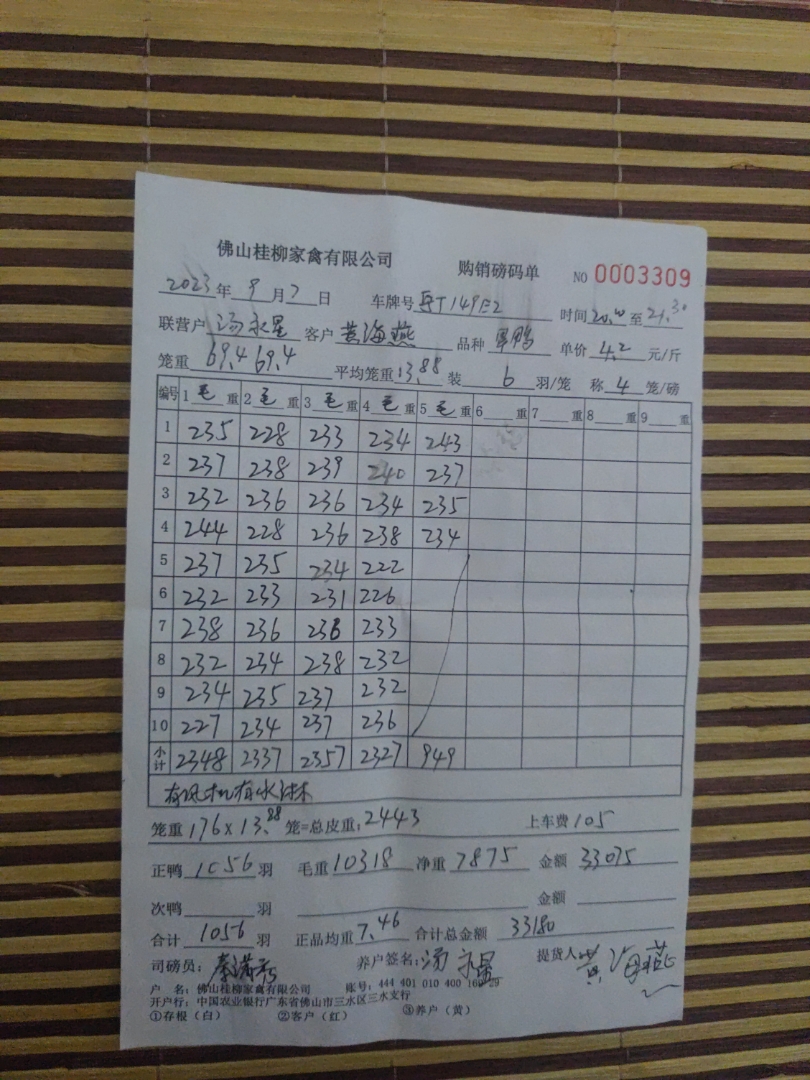 佛山桂柳家禽有限公司 购销磅码单 NO 0003309
2023年 9 月 7 日 车牌号 时间 20.10 至 21.30
联营户 汤永星 客户 黄海燕 品种 单价 4.2 元/斤
笼重 69.4 69.4 平均笼重 13.88 装 6 羽/笼 称 4 笼/磅
编号 1 毛 重 2 毛 重 3 毛 重 4 毛 重 5 毛 重 6 重 7 重 8 重 9 重
1 235 228 233 234 243
2 237 238 239 240 237
3 232 236 236 234 235
4 244 228 236 238 234
5 237 235 234 222
6 232 233 231 226
7 238 236 236 233
8 232 234 238 232
9 234 235 237 232
10 227 234 237 236
小计 2348 2337 2357 2327 949
有风机有水淋
笼重 176 x 13.88 笼=总皮重: 2443 上车费 105
正鸭 1056 羽 毛重 10318 净重 7875 金额 33075
次鸭 羽 金额
合计 1056 羽 正品均重 7.46 合计总金额 33180
司磅员: 养户签名: 汤永星 提货人 黄海燕
户 名: 佛山桂柳家禽有限公司 账号: 444 401 010 400 29
开户行: 中国农业银行广东省佛山市三水区三水支行
①存根(白) ②客户(红) ③养户(黄)